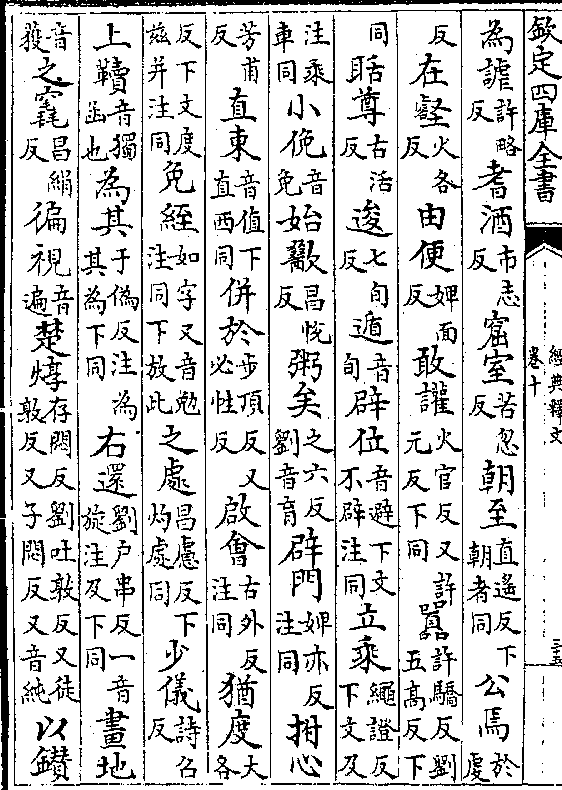 欽定四庫全書
經典釋文
卷十
三五
為謔許略反耆酒市志反窟室苦忽反朝至直遙反下朝者同公焉於虔
反在壑火各反由便婢面反敢讙火官反又許元反下同囂許驕反劉五高反下
同聒尊古活反逡七旬反遁音旬辟位音避下文不辟注同立乘繩證反下文及
注乘車同小俛音免始歠昌悅反粥矣之六反劉音育辟門婢亦反注同拊心
芳甫反直東音值下直西同併於步頂反又必性反啟會古外反注同猶度大各
反下文度茲并注同免絰如字又音勉注同下放此之處昌慮反下灼處同少儀詩召反
上韇音獨函也為其于偽反注為其為下同右還劉戶串反一音旋注及下同畫地
音獲之竁昌絹反徧視音遍楚焞存悶反劉吐敦反又徒敦反又子悶反又音純以鑽